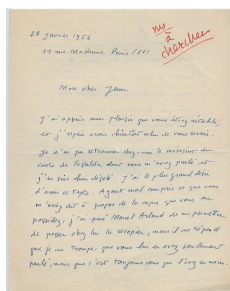 28 janvier 1956
ms
à
chercher
11 rue Madame Paris (VI)
Mon cher Jean
J'ai appris avec plaisir que vous étiez rétabli,
et j'espère avoir bientôt celui de vous revoir.
Je n'ai pu retrouver chez moi le manuscrit du
conte de dont vous m'avez parlé et
j'en suis bien désolé. J'ai le plus grand désir
d'avoir ce texte. Ayant mal compris ce que vous
m'avez dit à propos de la copie que vous en
possédez, j'ai prié Marcel Arland de me permettre
de passer chez lui la recopier, mais il me répond
que je me trompe, que vous lui en avez seulement
parlé, mais que c'est toujours vous qui l'avez en mains.